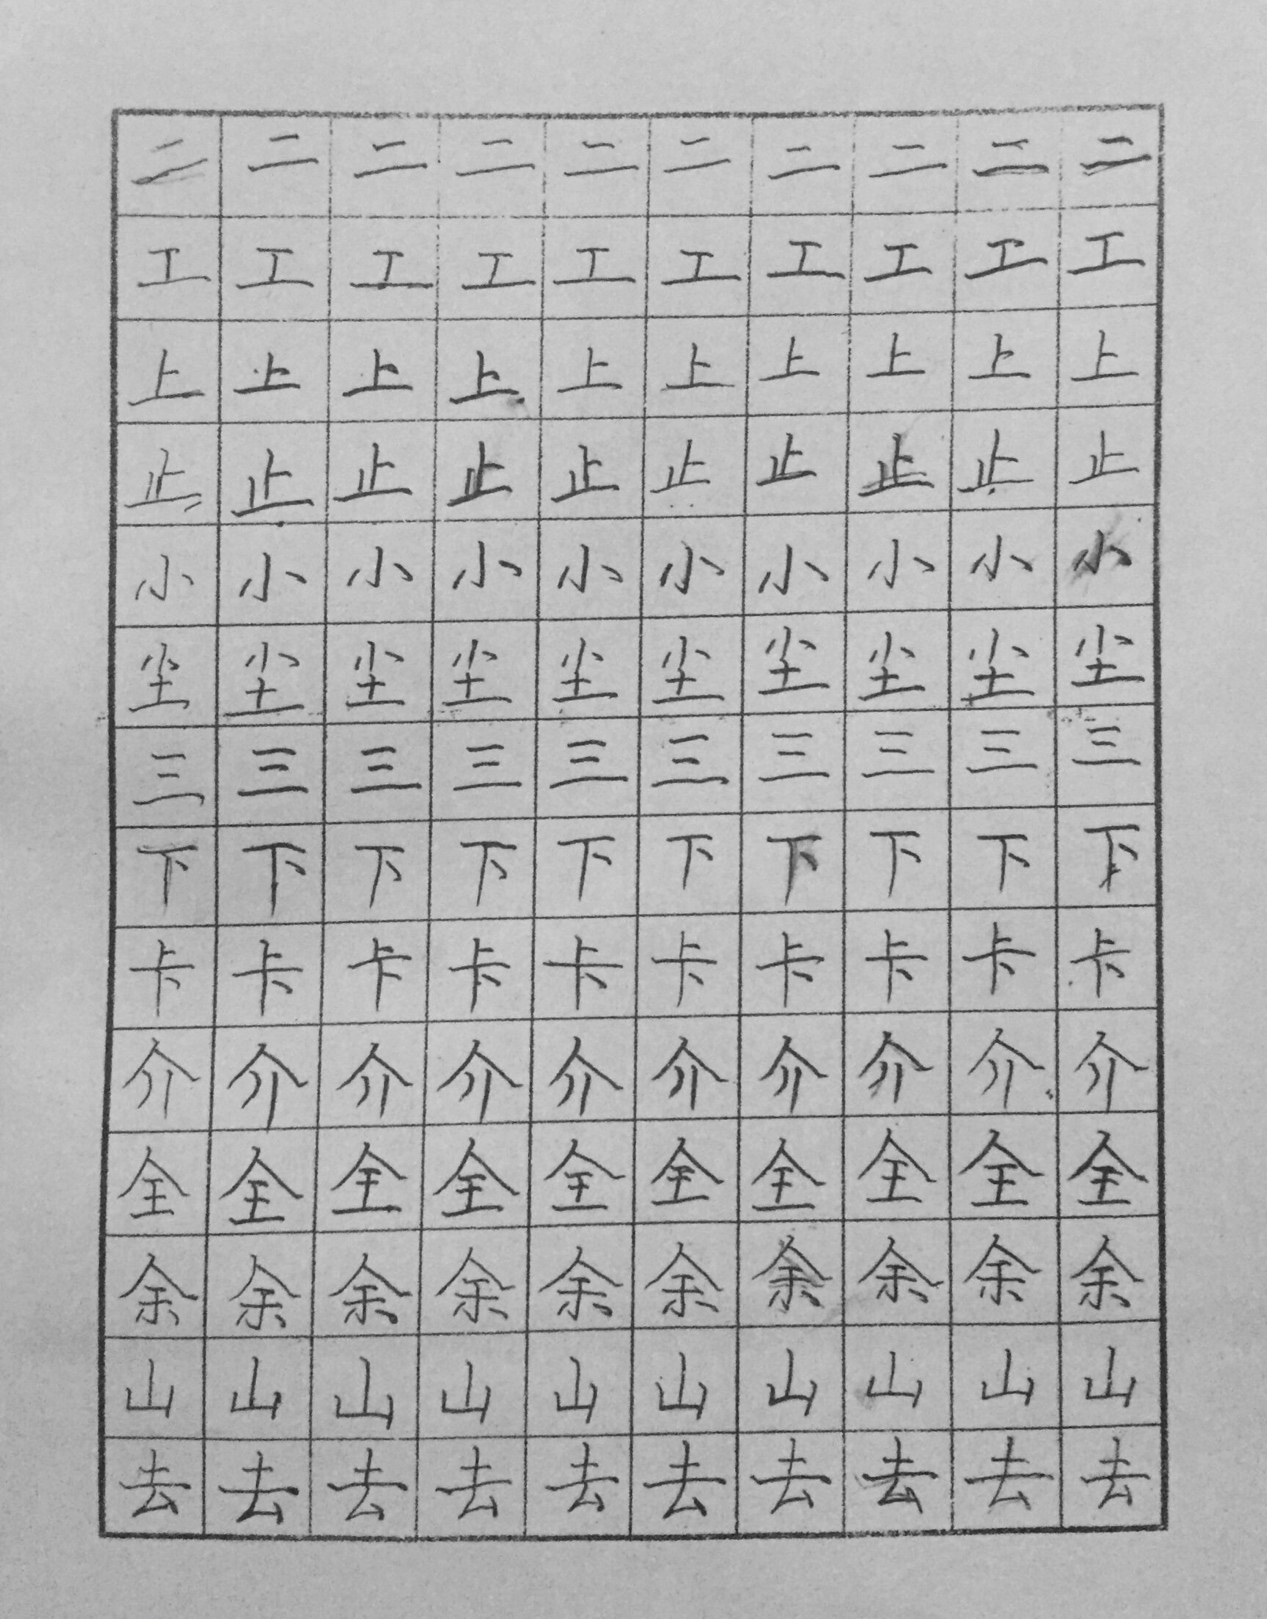 二二二二二二二二二二
工工工工工工工工工工
上上上上上上上上上上
止止止止止止止止止止
小小小小小小小小小小
尘尘尘尘尘尘尘尘尘尘
三三三三三三三三三三
下下下下下下下下下下
卡卡卡卡卡卡卡卡卡卡
介介介介介介介介介介
全全全全全全全全全全
余余余余余余余余余余
山山山山山山山山山山
去去去去去去去去去去